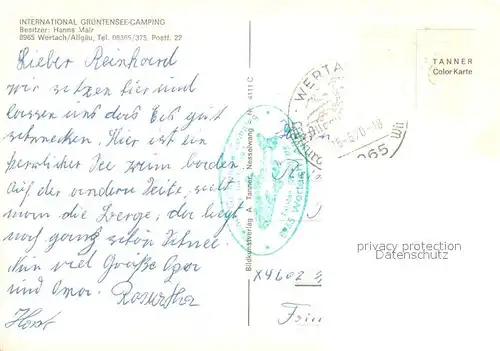 INTERNATIONAL GRÜNTENSEE-CAMPING
Besitzer: Hanns Mair
8965 Wertach/Allgäu, Tel. 08365/375, Postf. 22
Lieber Reinhard
wir sitzen hier und
lassen uns das Eis gut
schmecken. Hier ist ein
herrlicher See zum baden
auf der andern Seite, sieht
man die Berge, da liegt
noch ganz schön Schnee.
Nun viel Grüße Opa
und Oma.
Horst
Bildkunstverlag A. Tanner, Nesselwang - Nr. 4111 C
WERTA
8965 Wertach
TANNER
Color Karte
privacy protection
Datenschutz